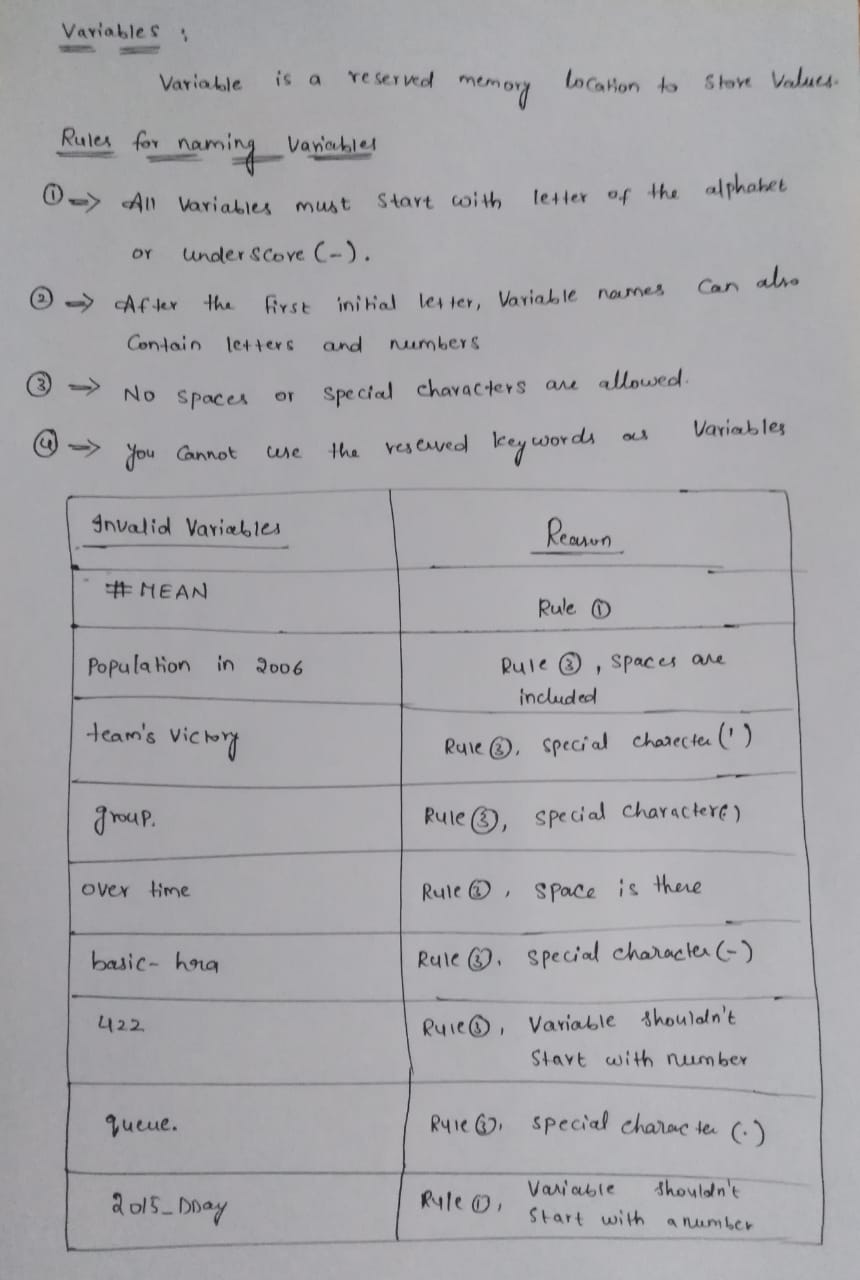 Variables :
Variable is a reserved memory location to store values.
Rules for naming Variables
① => All Variables must Start with letter of the alphabet
or underscore (-).
② => After the first initial letter, Variable names Can also
Contain letters and numbers
③ => No spaces or special characters are allowed.
④ => You Cannot use the reserved keywords as Variables
Invalid Variables Reason
# MEAN Rule ①
Population in 2006 Rule ③, spaces are
included
team's Victory Rule ③, special charecter (')
group. Rule ③, special character(.)
over time Rule ③, space is there
basic- hra Rule ③, special character (-)
422 Rule ①, Variable shouldn't
Start with number
queue. Rule ③, special character (.)
2015_DDay Rule ①, Variable shouldn't
Start with a number